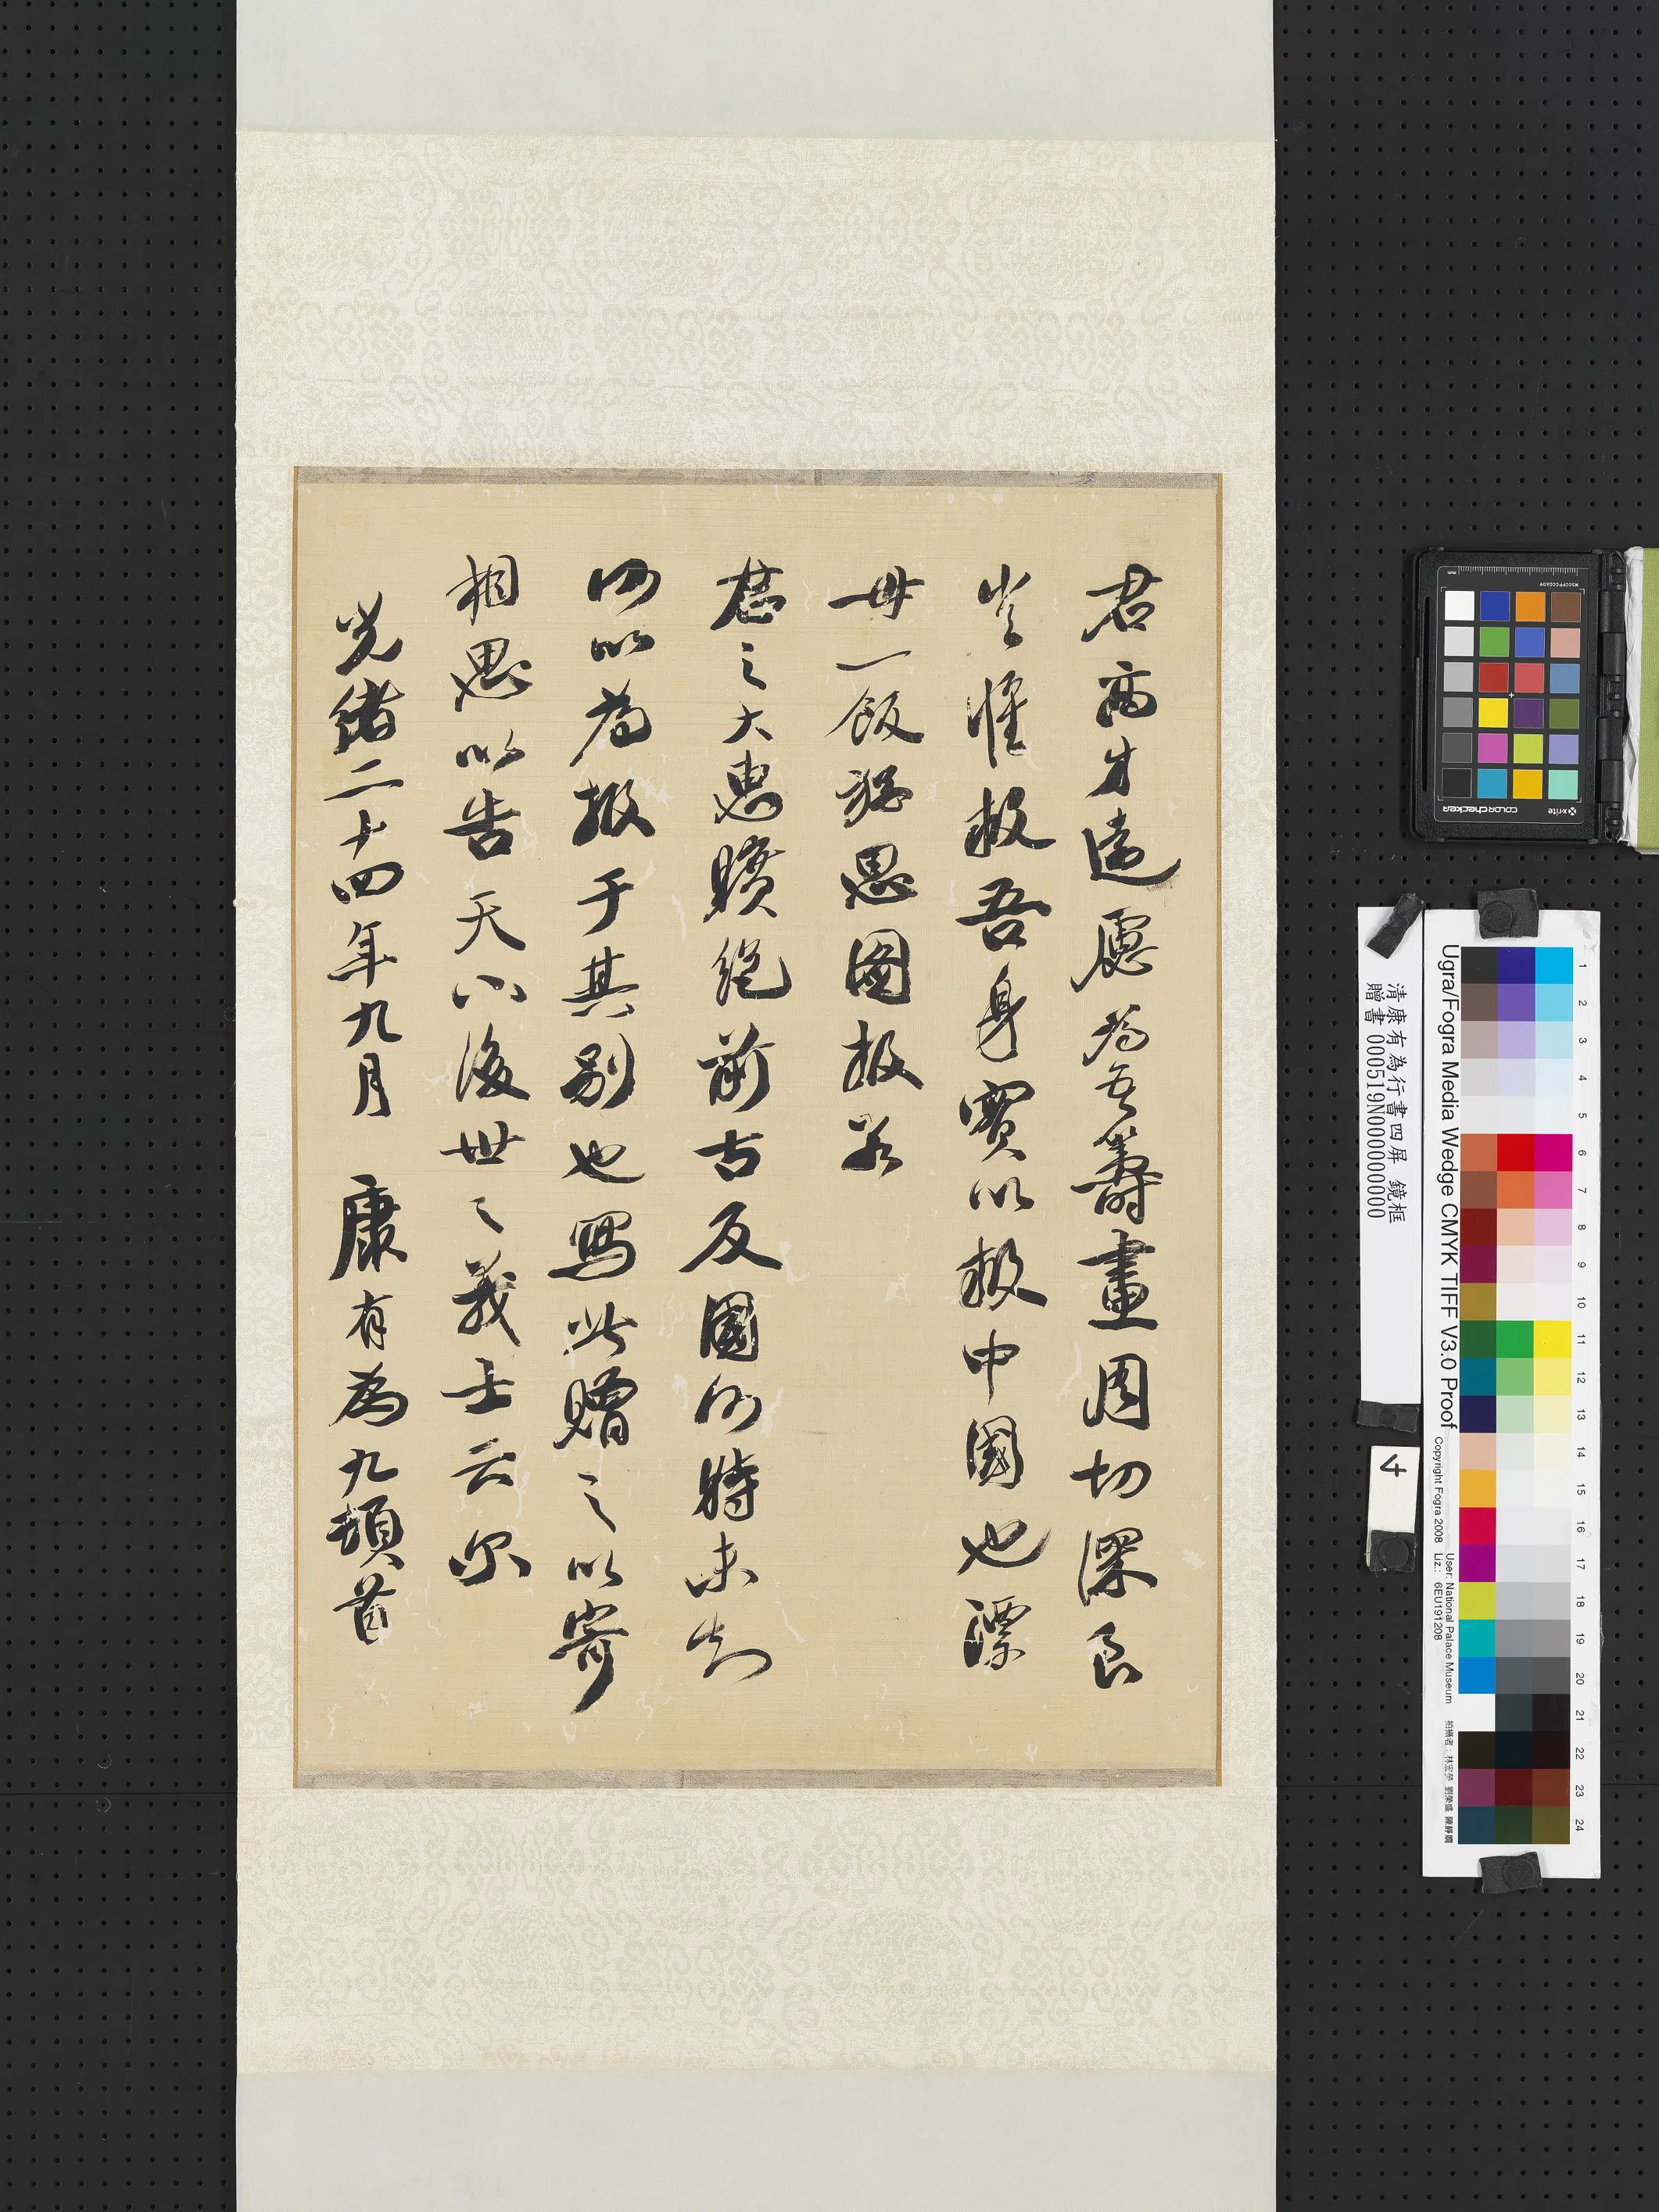 君高才遠慮為吾籌畫周切深良
豈惟救吾身實以救中國也漂
母一飯猶思圖報若
君之大惠曠絕前古反國何時未知
何以為報于其別也寫此贈之以寄
相思以告天下後世之義士云尔
光緒二十四年九月 康有為九頓首
清康有為行書四屏 鏡框
贈書 000519N000000000
4
Ugra/Fogra Media Wedge CMYK TIFF V3.0 Proof
Copyright Fogra 2008
User: National Palace Museum
Liz.: 6EU191208
1 2 3 4 5 6 7 8 9 10 11 12 13 14 15 16 17 18 19 20 21 22 23 24
x-rite
colorchecker
MSCCPPCC0609